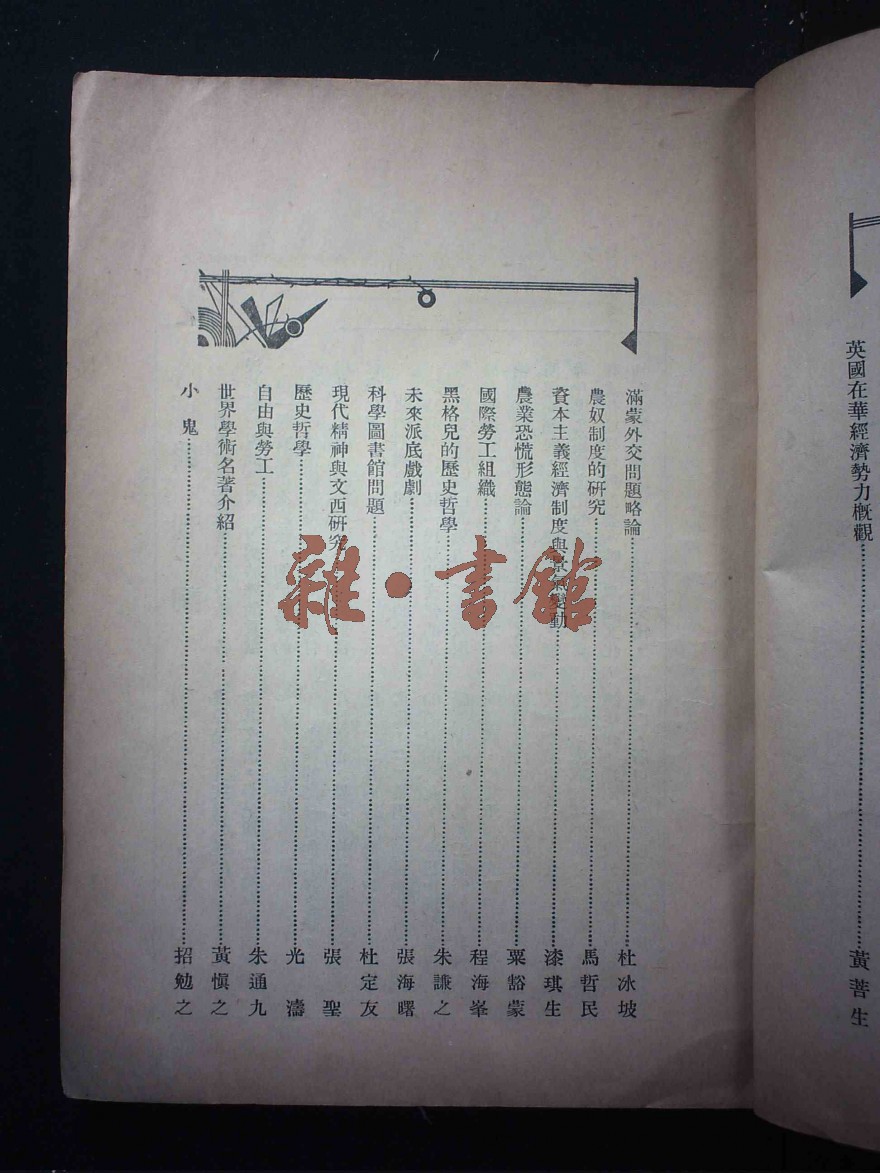 英國在華經濟勢力概觀 黃菩生
滿蒙外交問題略論 杜冰坡
農奴制度的研究 馬哲民
資本主義經濟制度與景氣變動 漆琪生
農業恐慌形態論 粟豁蒙
國際勞工組織 程海峯
黑格兒的歷史哲學 朱謙之
未來派底戲劇 張海曙
科學圖書館問題 杜定友
現代精神與文西研究 張聖
歷史哲學 光濤
自由與勞工 朱通九
世界學術名著介紹 黃慎之
小鬼 招勉之
雜·書館